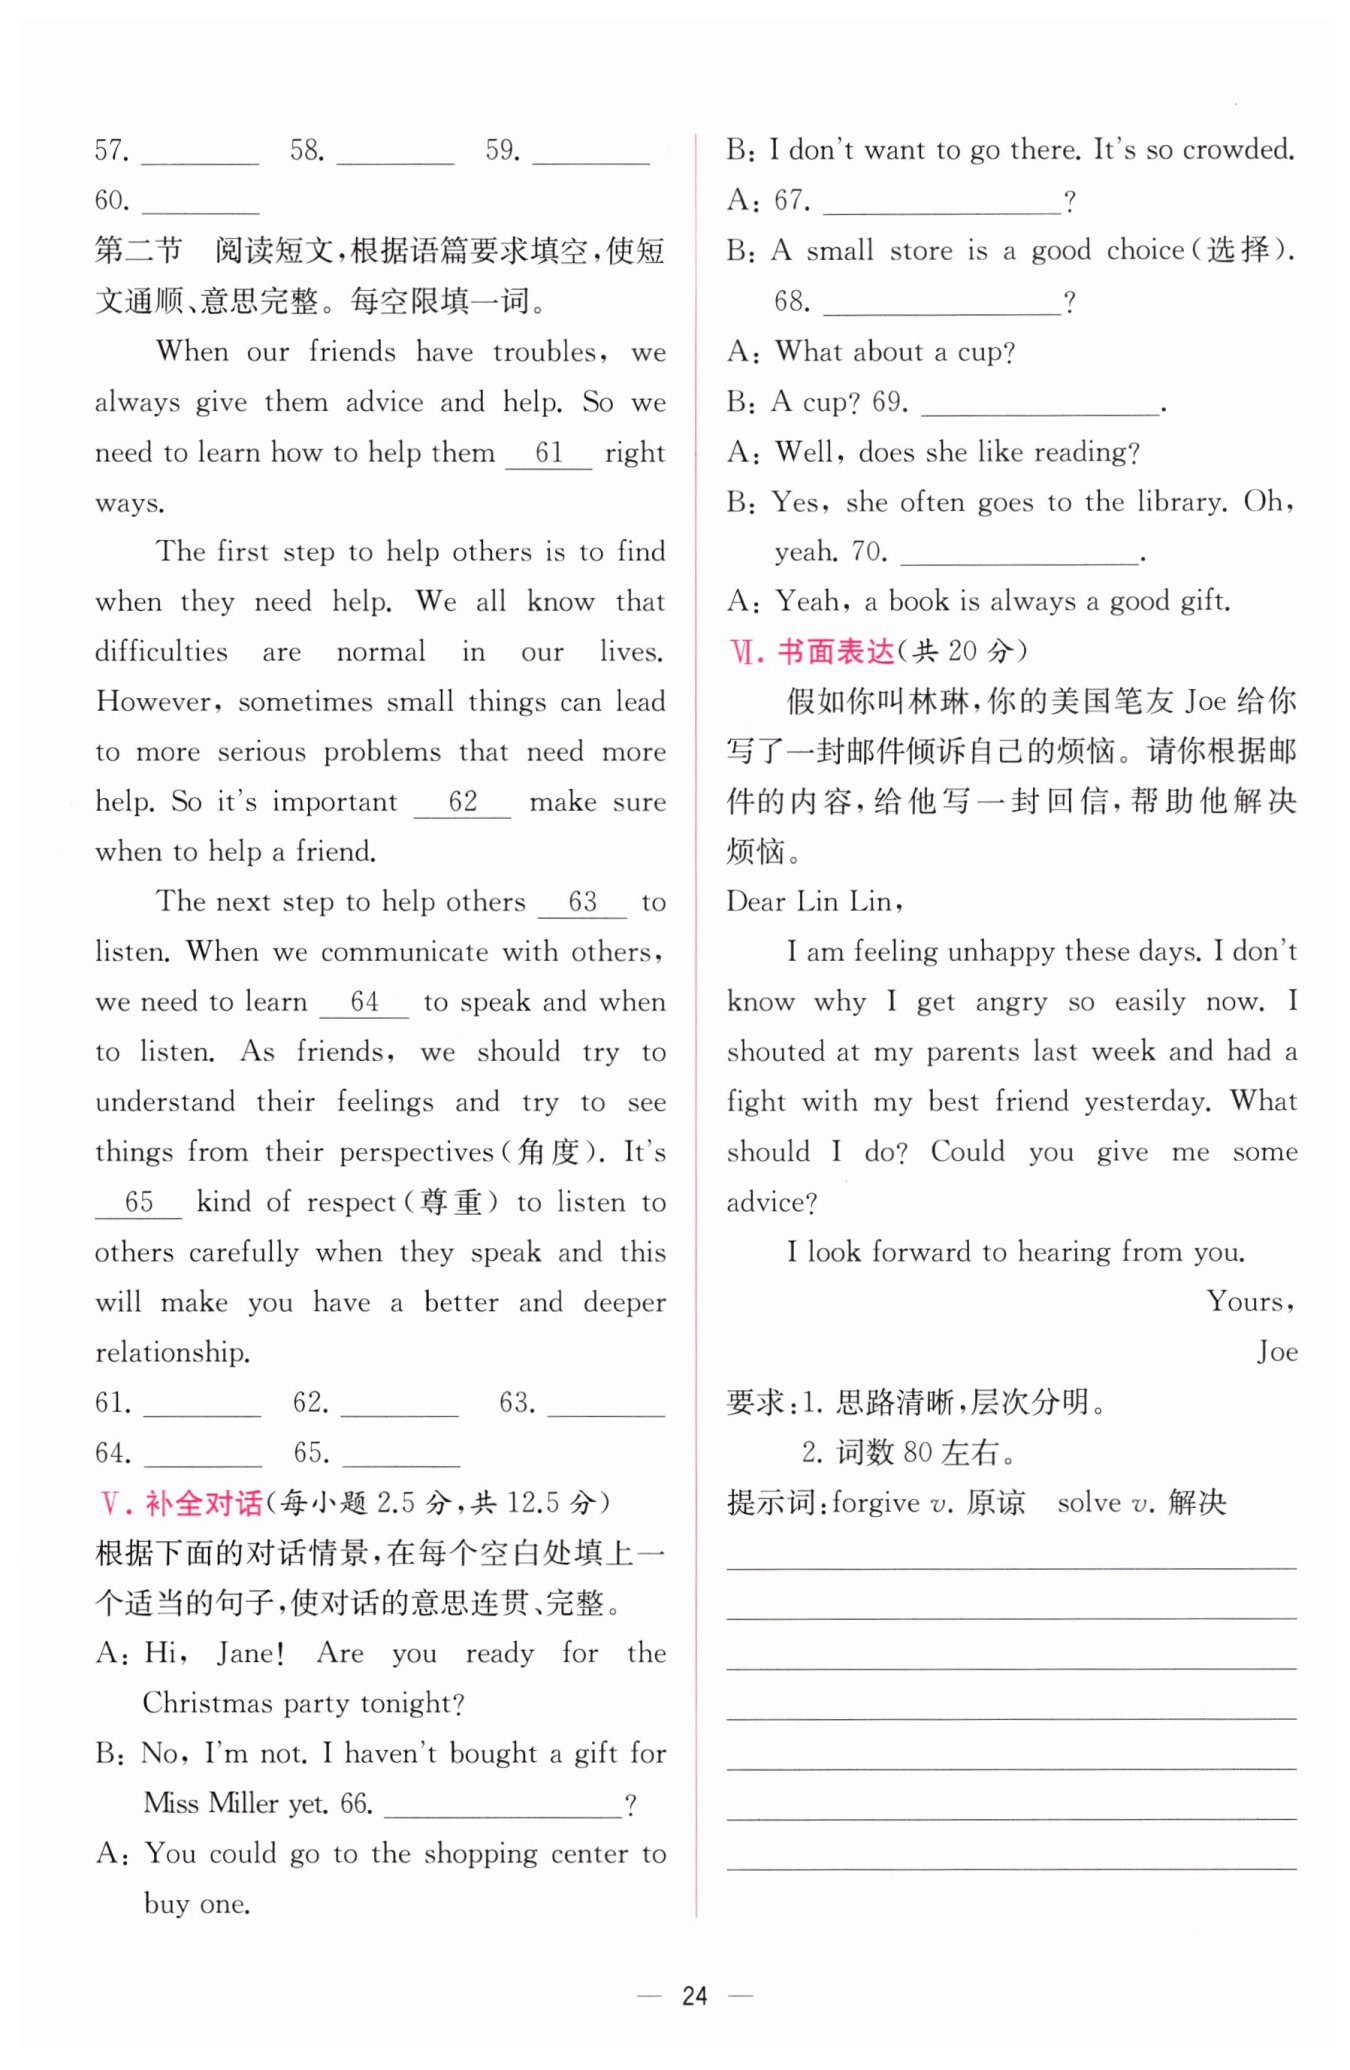 57. ________ 58. ________ 59. ________
60. ________
第二节 阅读短文,根据语篇要求填空,使短
文通顺、意思完整。每空限填一词。
When our friends have troubles, we
always give them advice and help. So we
need to learn how to help them 61 right
ways.
The first step to help others is to find
when they need help. We all know that
difficulties are normal in our lives.
However, sometimes small things can lead
to more serious problems that need more
help. So it's important 62 make sure
when to help a friend.
The next step to help others 63 to
listen. When we communicate with others,
we need to learn 64 to speak and when
to listen. As friends, we should try to
understand their feelings and try to see
things from their perspectives(角度). It's
65 kind of respect(尊重) to listen to
others carefully when they speak and this
will make you have a better and deeper
relationship.
61. ________ 62. ________ 63. ________
64. ________ 65. ________
Ⅴ. 补全对话(每小题 2.5 分,共 12.5 分)
根据下面的对话情景,在每个空白处填上一
个适当的句子,使对话的意思连贯、完整。
A: Hi, Jane! Are you ready for the
Christmas party tonight?
B: No, I'm not. I haven't bought a gift for
Miss Miller yet. 66. ________________?
A: You could go to the shopping center to
buy one.
B: I don't want to go there. It's so crowded.
A: 67. ________________?
B: A small store is a good choice(选择).
68. ________________?
A: What about a cup?
B: A cup? 69. ________________.
A: Well, does she like reading?
B: Yes, she often goes to the library. Oh,
yeah. 70. ________________.
A: Yeah, a book is always a good gift.
Ⅵ. 书面表达(共 20 分)
假如你叫林琳,你的美国笔友 Joe 给你
写了一封邮件倾诉自己的烦恼。请你根据邮
件的内容,给他写一封回信,帮助他解决
烦恼。
Dear Lin Lin,
I am feeling unhappy these days. I don't
know why I get angry so easily now. I
shouted at my parents last week and had a
fight with my best friend yesterday. What
should I do? Could you give me some
advice?
I look forward to hearing from you.
Yours,
Joe
要求:1. 思路清晰,层次分明。
2. 词数 80 左右。
提示词:forgive v. 原谅 solve v. 解决
— 24 —